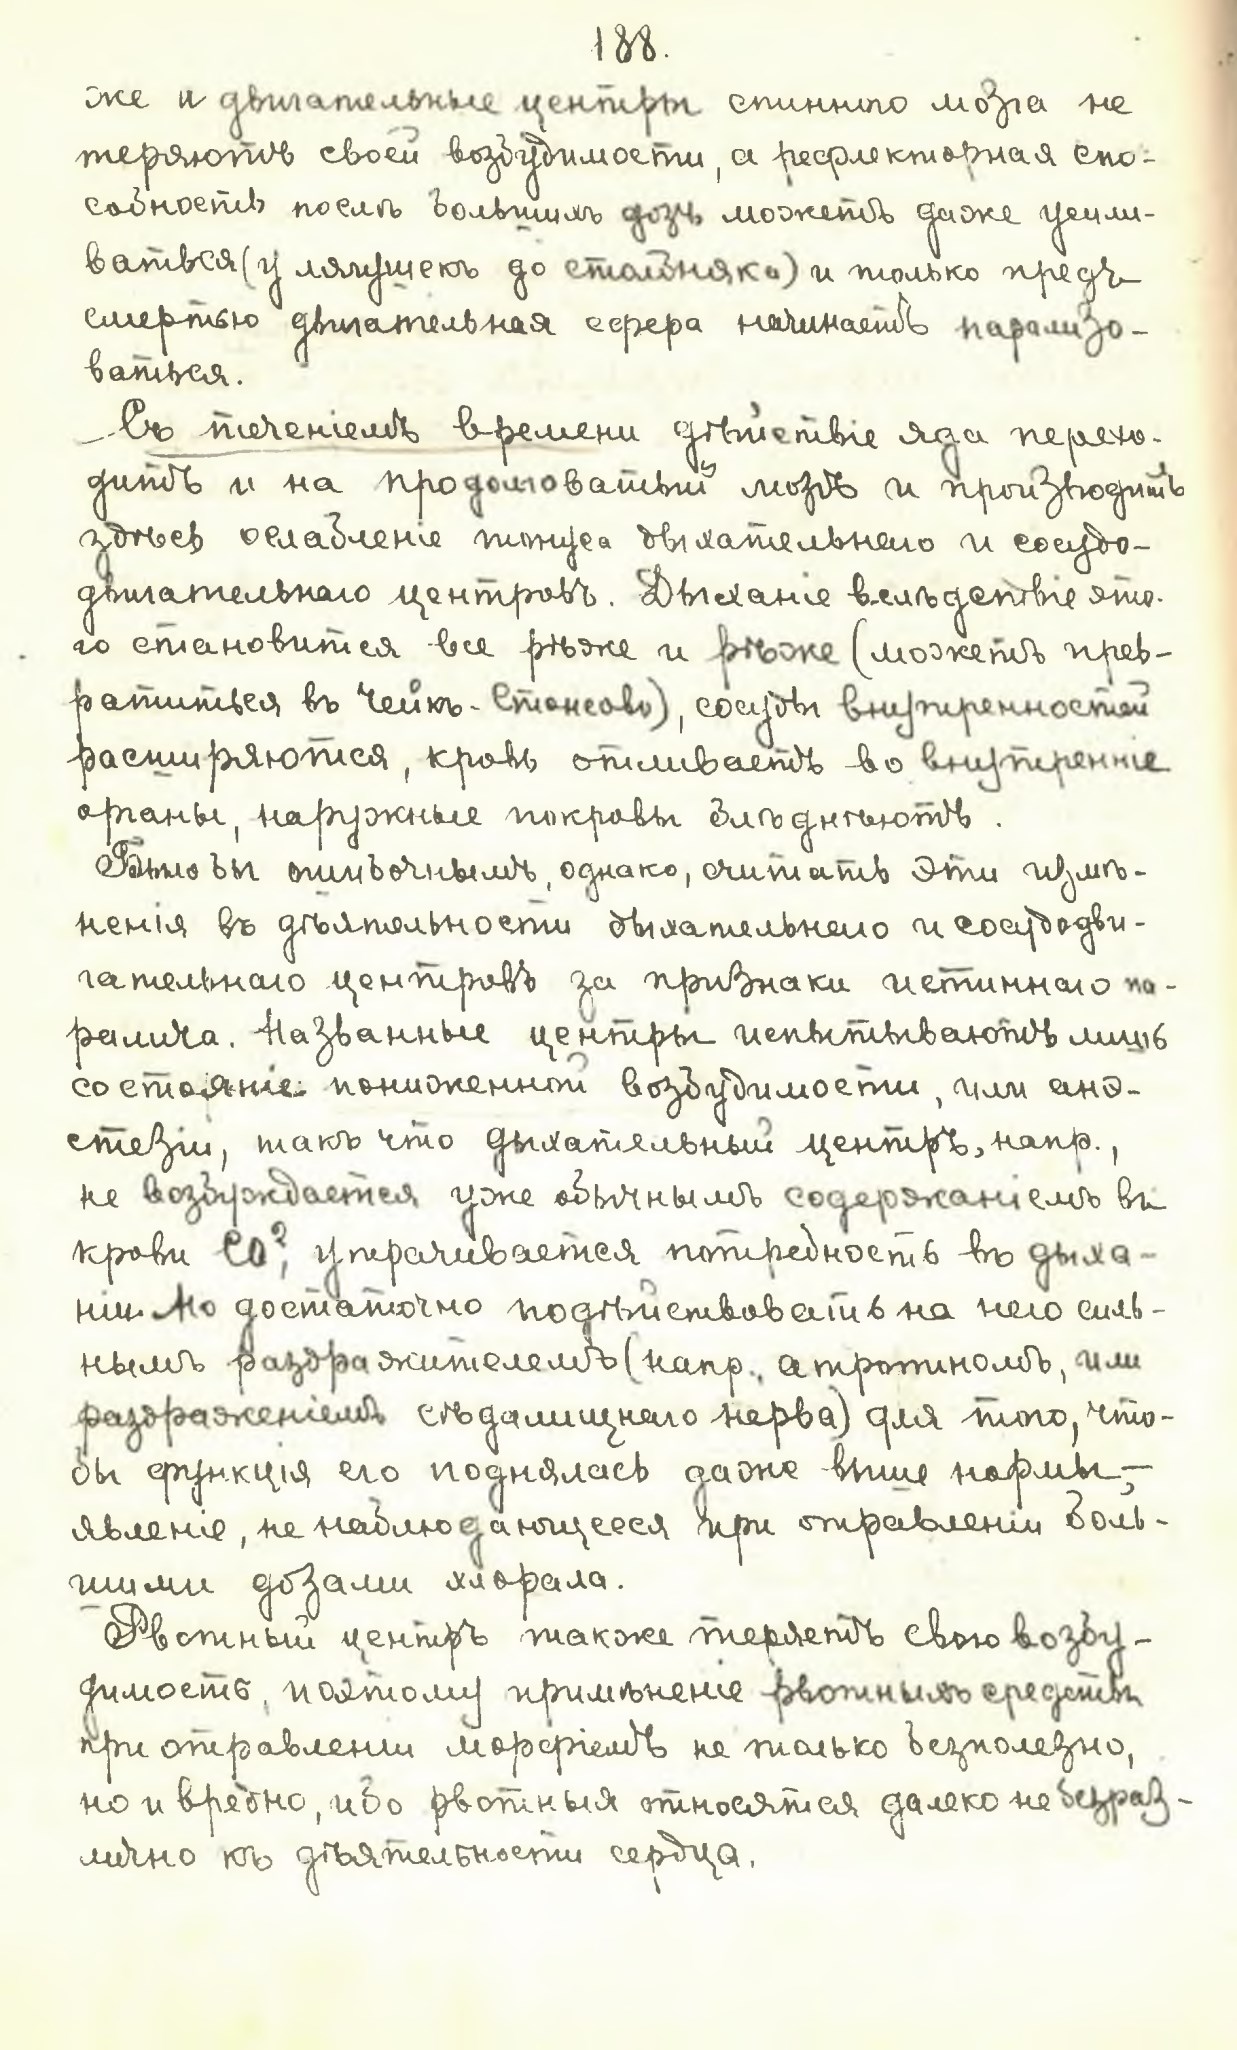 188.
же и двигательные центры спинного мозга не
теряютъ своей возбудимости, а рефлекторная спо-
собность послѣ большихъ дозъ можетъ даже усили-
ваться (у лягушекъ до столбняка) и только предъ
смертью двигательная сфера начинаетъ парализо-
ваться.
Съ теченіемъ времени дѣйствіе яда перехо-
дитъ и на продолговатый мозгъ и производитъ
здѣсь ослабленіе тонуса дыхательнаго и сосудо-
двигательнаго центровъ. Дыханіе вслѣдствіе это-
го становится все рѣже и рѣже (можетъ прев-
ратиться въ Чейнъ-Стоксово), сосуды внутренностей
расширяются, кровь отливаетъ во внутренніе
органы, наружные покровы блѣднѣютъ.
Было бы ошибочнымъ, однако, считать эти измѣ-
ненія въ дѣятельности дыхательнаго и сосудодви-
гательнаго центровъ за признаки истиннаго па-
ралича. Названные центры испытываютъ лишь
состояніе пониженной возбудимости, или анэ-
стезіи, такъ что дыхательный центръ, напр.,
не возбуждается уже обычнымъ содержаніемъ въ
крови CO², утрачивается потребность въ дыха-
ніи. Но достаточно подѣйствовать на него силь-
нымъ раздражителемъ (напр., атропиномъ, или
раздраженіемъ сѣдалищнаго нерва) для того, что-
бы функція его поднялась даже выше нормы,—
явленіе, не наблюдающееся при отравленіи боль-
шими дозами хлорала.
Рвотный центръ также теряетъ свою возбу-
димость, поэтому примѣненіе рвотныхъ средствъ
при отравленіи морфіемъ не только безполезно,
но и вредно, ибо рвотныя относятся далеко не безраз-
лично къ дѣятельности сердца.